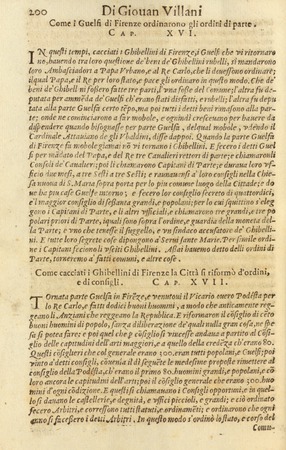 200 Di Giouan Villani
Come i Guelfi di Firenze ordinarono gli ordini di parte.
CAP. XVI.
IN questi tempi, cacciati i Ghibellini di Firenze, i Guelfi che vi ritornaro
no, hauendo tra loro questione de' beni de' Ghibellini rubelli, si mandarono
loro Ambasciadori a Papa Vrbano, et al Re Carlo, che li douessono ordinare;
il qual Papa, e il Re per loro stato, e pace gli ordinaro in questo modo. Che de' be
ni de' Ghibellini si fosero fatte tre parti, l'una fosse del commune; l'altra fu de
putata per ammenda de' Guelfi ch'erano stati disfatti, e rubelli; l'altra fu depu
tata alla parte Guelfa certo tempo, ma poi tutti i detti beni rimasono alla par-
te; onde ne cominciarono a far mobole, e ogni di crescerono per bauere da
dispendere quando bisognasse per parte Guelfa, del qual mobole, vdendo il
Cardinale Attauiano de gli Vbaldini, disse dappoi. Quando la parte Guelfa
di Firenze fa mobole giamai non vi tornano i Ghibellini. E fecero i detti Guel
fi per mandato del Papa, e del Re tre Caualieri rettori di parte; e chiamaronli
Consoli de' Caualieri; poi li chiamarono Capitani di Parte; durauano loro vf-
ficio due mesi, a tre Sesti a tre Sesti; e raunauansi a' loro consigli nella Chie
sa nuoua di S. Maria sopra porta per lo piu comune luogo della Cittade; do
ue ha piu case Guelfe intorno; e fecero lor consiglio secreto di quattordici,
e l'maggior consiglio di sessanta grandi, e popolani; per lo cui squittino s'eleg
gono i Capitani di Parte, e li altri vfficiali; e chiamarono tre grandi, e tre po
polari priori di Parte, iquali sono sopra l'ordine, e guardia della moneta del-
la Parte, e vno che tenesse il suggello, e vn sindaco accusatore de' Ghibelli-
ni. E tutte loro segrete cose dipongono a' Serui sante Marie. Per simile ordine
ni i Capitani feciono li vsciti Ghibellini. Assai hauemo detto delli ordini di
Parte, torneremo a' communi fatti, e altre cose.
Come cacciati i Ghibellini di Firenze la Città si riformò d'ordini,
e di consigli. CAP. XVII.
TOrnata parte Guelfa in Firenze, e venutoui il Vicario ouero Podesta per
lo Re Carlo, e fatti dodici buoni huomini, a modo che anticamente reg-
geano li Anziani che reggeano la Republica. E riformaron il consiglio di cento
buoni huomini di popolo, senza diliberatione de' quali nulla gran cosa, ne spe
sa si potea fare; e poi che i per quello consiglio si vincesse andaua a partito al Consi-
glio delle capitudini dell'arti maggiori, e a quello della credenza ch'erano 80.
Questi consiglieri che col generale erano 300. eran tutti popolani, e Guelfi; poi
vinto a' detti consigli, conuenia il dì seguente le medesime proposte rimettere al
consiglio della Podesta, ch'era il primo 80. huomini grandi, e popolani; e con
loro ancora le capitudini dell'arti; poi il consiglio generale che erano 300. huo
mini d'ogni conditione. E questi si chiamauano i consigli Opportuni, et in quel-
li si dauano le castellerie, e degnità, e vffici piccioli, e grandi; e ciò ordinato
fecero Arbitri, e corressono tutti statuti, e ordinamenti; e ordinarono che ogni
anno si facessero i detti Arbitri. In questo modo s'ordinò lo stato, e corso del
Comu-